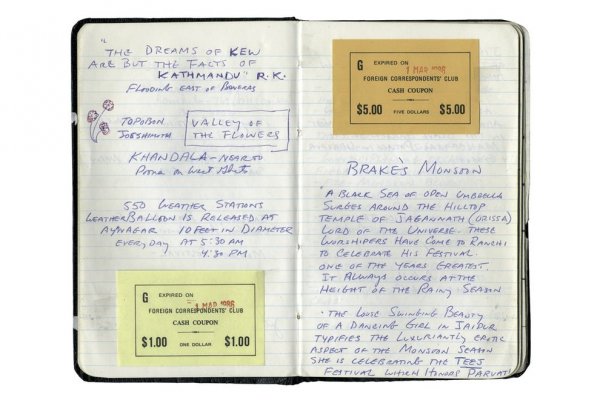 "THE DREAMS OF KEW
ARE BUT THE FACTS OF
KATHMANDU" R.K.
FLOODING EAST OF
TOPOBON
JOSHIMUTH
VALLEY OF
THE FLOWERS
KHANDALA - NEAR TO
POONA ON WEST GHATS
550 WEATHER STATIONS
WEATHER BALLOON IS RELEASED AT
AYANAGAR 10 FEET IN DIAMETER
EVERYDAY AT 5:30 AM
4:30 PM
G EXPIRED ON
1 MAR 1986
FOREIGN CORRESPONDENTS' CLUB
CASH COUPON
$1.00 ONE DOLLAR $1.00
G EXPIRED ON
1 MAR 1986
FOREIGN CORRESPONDENTS' CLUB
CASH COUPON
$5.00 FIVE DOLLARS $5.00
BRAKE'S MONSOON
A BLACK SEA OF OPEN UMBRELLA
SURGES AROUND THE HILLTOP
TEMPLE OF JAGANNATH (ORISSA)
LORD OF THE UNIVERSE. THESE
WORSHIPERS HAVE COME TO RANCHI
TO CELEBRATE HIS FESTIVAL
ONE OF THE YEARS GREATEST.
IT ALWAYS OCCURS AT THE
HEIGHT OF THE RAINY SEASON
• THE LOOSE SWINGING BEAUTY
OF A DANCING GIRL IN JAIPUR
TYPIFIES THE LUXURIANTLY EROTIC
ASPECT OF THE MONSOON SEASON
SHE IS CELEBRATING THE TEEJ
FESTIVAL WHICH HONORS PARVATI